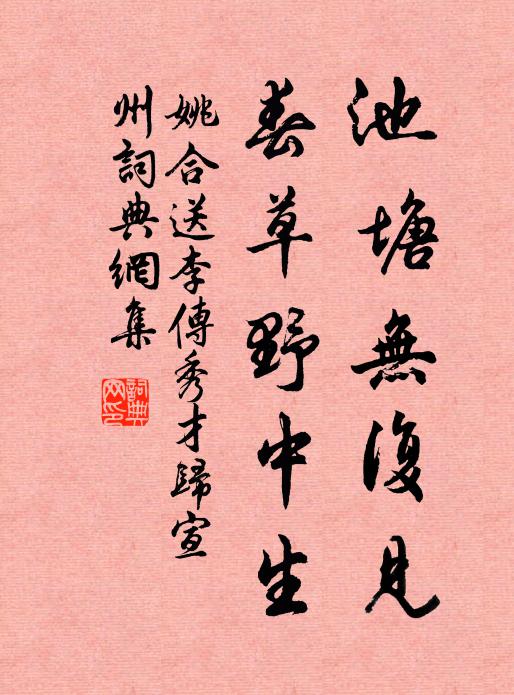 池塘無復見
春草野中生
姚合送李傅秀才歸宣
州詞典網集
詞典
网印